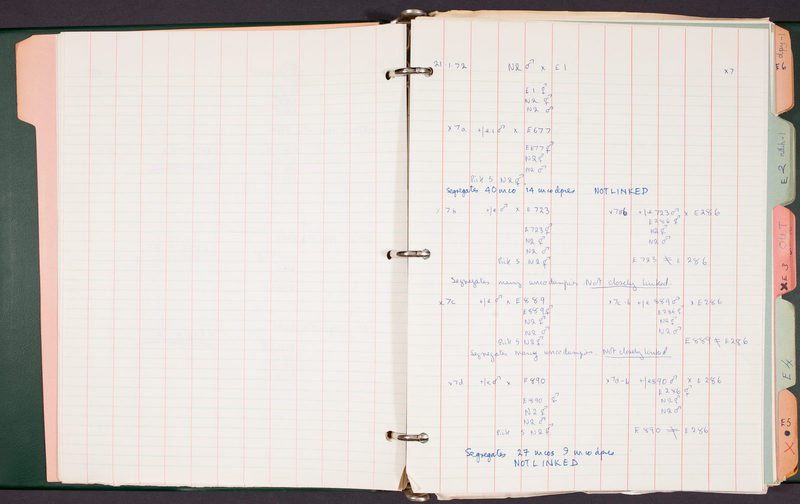 21 1.72 N2 ♂ x E1 x7
E1 ⚥
N2 ⚥
N2 ♂
x7a +/e1 ♂ x E677
E677 ⚥
N2 ⚥
N2 ♂
Pick 5 N2 ⚥
Segregates 40 unco 14 uncodpies NOT LINKED
x7b +/e ♂ x E723 x7b-b +/e723 ♂ x E286
E723 ⚥ E286 ⚥
N2 ⚥ N2 ⚥
N2 ♂ N2 ♂
Pick 5 N2 ⚥ E723 ≠ E286
Segregates many uncodumpies Not closely linked
x7c +/e ♂ x E889 x7c-b +/e889 ♂ x E286
E889 ⚥ E286 ⚥
N2 ⚥ N2 ⚥
N2 ♂ N2 ♂
Pick 5 N2 ⚥ E889 ≠ E286
Segregates many uncodumpies. Not closely linked
x7d +/e ♂ x E890 x7d-b +/e890 ♂ x E286
E890 ⚥ E286 ⚥
N2 ⚥ N2 ⚥
N2 ♂ N2 ♂
Pick 5 N2 ⚥ E890 ≠ E286
Segregates 27 uncos 9 uncodpies
NOT LINKED
E6 dpy-1
E2
x E3
E4
E5
X